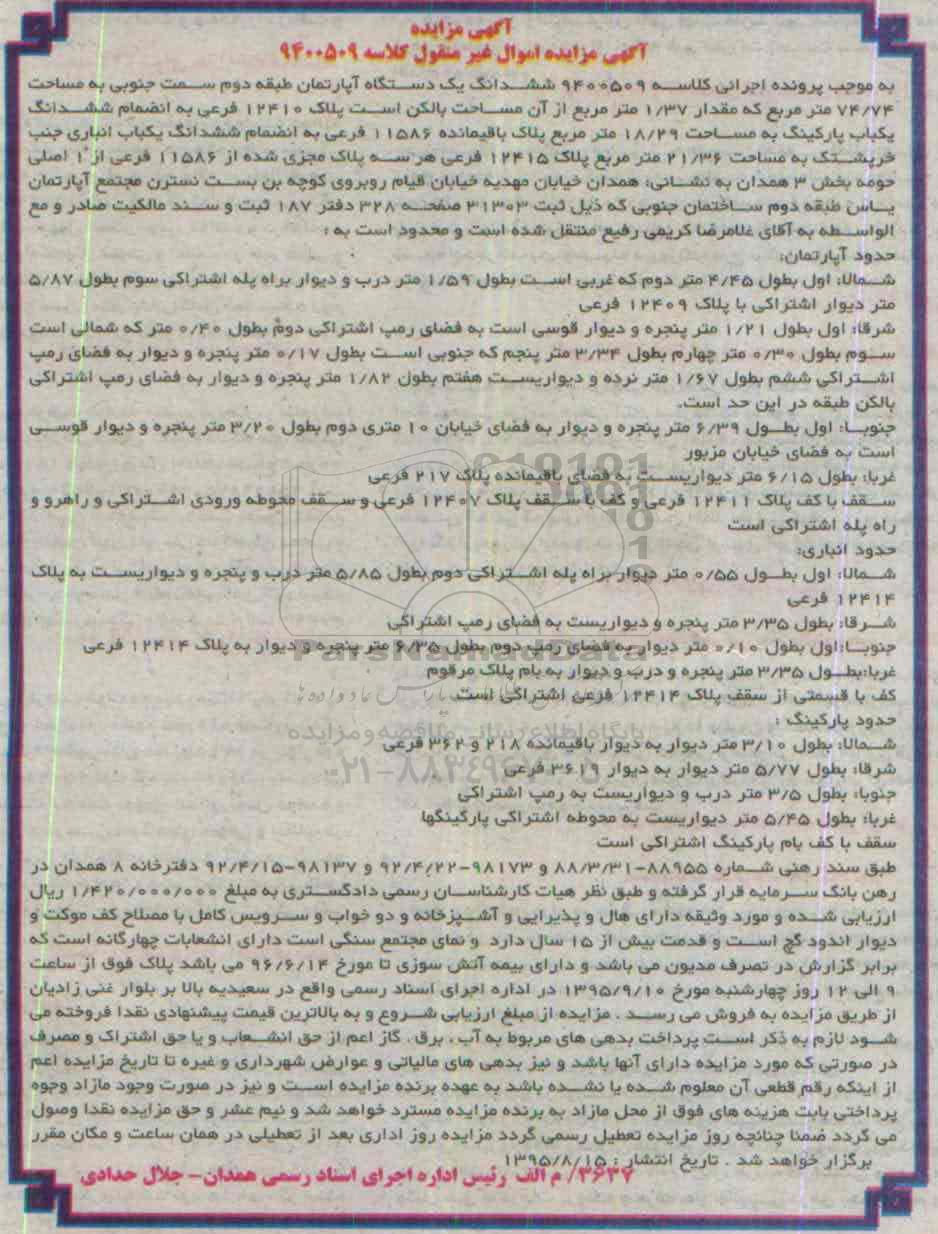 آگهی مزایده
آگهی مزایده اموال غیر منقول کلاسه ۹۴۰۰۵۰۹
به موجب پرونده اجرائی کلاسه ۹۴۰۰۵۰۹ ششدانگ یک دستگاه آپارتمان طبقه دوم سمت جنوبی به مساحت
۷۴/۷۴ متر مربع که مقدار ۱/۳۷ متر مربع از آن مساحت بالکن است پلاک ۱۲۴۱۰ فرعی به انضمام ششدانگ
یکباب پارکینگ به مساحت ۱۸/۲۹ متر مربع پلاک باقیمانده ۱۱۵۸۶ فرعی به انضمام ششدانگ یکباب انباری جنب
خرپشتک به مساحت ۲۱/۳۶ متر مربع پلاک ۱۲۴۱۵ فرعی هر سه پلاک مجزی شده از ۱۱۵۸۶ فرعی از ۱۰ اصلی
حومه بخش ۳ همدان به نشانی: همدان خیابان مهدیه خیابان قیام روبروی کوچه بن بست نسترن مجتمع آپارتمان
یاس طبقه دوم ساختمان جنوبی که ذیل ثبت ۳۱۳۰۳ صفحه ۳۲۸ دفتر ۱۸۷ ثبت و سند مالکیت صادر و مع
الواسطه به آقای غلامرضا کریمی رفیع منتقل شده است و محدود است به :
حدود آپارتمان:
شمالا: اول بطول ۴/۴۵ متر دوم که غربی است بطول ۱/۵۹ متر درب و دیوار براه پله اشتراکی سوم بطول ۵/۸۷
متر دیوار اشتراکی با پلاک ۱۲۴۰۹ فرعی
شرقا: اول بطول ۱/۲۱ متر پنجره و دیوار قوسی است به فضای رمپ اشتراکی دوم بطول ۰/۴۰ متر که شمالی است
سوم بطول ۰/۳۰ متر چهارم بطول ۳/۳۴ متر پنجم که جنوبی است بطول ۰/۱۷ متر پنجره و دیوار به فضای رمپ
اشتراکی ششم بطول ۱/۶۷ متر نرده و دیواریست هفتم بطول ۱/۸۲ متر پنجره و دیوار به فضای رمپ اشتراکی
بالکن طبقه در این حد است.
جنوبا: اول بطول ۶/۳۹ متر پنجره و دیوار به فضای خیابان ۱۰ متری دوم بطول ۳/۲۰ متر پنجره و دیوار قوسی
است به فضای خیابان مزبور
غربا: بطول ۶/۱۵ متر دیواریست به فضای باقیمانده پلاک ۲۱۷ فرعی
سقف با کف پلاک ۱۲۴۱۱ فرعی و کف با سقف پلاک ۱۲۴۰۷ فرعی و سقف محوطه ورودی اشتراکی و راهرو و
راه پله اشتراکی است
حدود انباری:
شمالا: اول بطول ۰/۵۵ متر دیوار براه پله اشتراکی دوم بطول ۵/۸۵ متر درب و پنجره و دیواریست به پلاک
۱۲۴۱۴ فرعی
شرقا: بطول ۳/۳۵ متر پنجره و دیواریست به فضای رمپ اشتراکی
جنوبا: اول بطول ۰/۱۰ متر دیوار به فضای رمپ دوم بطول ۶/۳۵ متر پنجره و دیوار به پلاک ۱۲۴۱۴ فرعی
غربا: بطول ۳/۳۵ متر پنجره و درب و دیوار به بام پلاک مرقوم
کف با قسمتی از سقف پلاک ۱۲۴۱۴ فرعی اشتراکی است
حدود پارکینگ :
شمالا: بطول ۳/۱۰ متر دیوار به دیوار باقیمانده ۲۱۸ و ۳۶۲ فرعی
شرقا: بطول ۵/۷۷ متر دیوار به دیوار ۳۶۱۹ فرعی
جنوبا: بطول ۳/۵ متر درب و دیواریست به رمپ اشتراکی
غربا: بطول ۵/۴۵ متر دیواریست به محوطه اشتراکی پارکینگها
سقف با کف بام پارکینگ اشتراکی است
طبق سند رهنی شماره ۸۸۹۵۵-۸۸/۳/۳۱ و ۹۸۱۷۳-۹۲/۴/۲۲ و ۹۸۱۳۷-۹۲/۴/۱۵ دفترخانه ۸ همدان در
رهن بانک سرمایه قرار گرفته و طبق نظر هیات کارشناسان رسمی دادگستری به مبلغ ۱/۴۲۰/۰۰۰/۰۰۰ ریال
ارزیابی شده و مورد وثیقه دارای هال و پذیرایی و آشپزخانه و دو خواب و سرویس کامل با مصلاح کف موکت و
دیوار اندود گچ است و قدمت بیش از ۱۵ سال دارد و نمای مجتمع سنگی است دارای انشعابات چهارگانه است که
برابر گزارش در تصرف مدیون می باشد و دارای بیمه آتش سوزی تا مورخ ۹۶/۶/۱۴ می باشد پلاک فوق از ساعت
۹ الی ۱۲ روز چهارشنبه مورخ ۱۳۹۵/۹/۱۰ در اداره اجرای اسناد رسمی واقع در سعیدیه بالا بر بلوار غنی زادیان
از طریق مزایده به فروش می رسد . مزایده از مبلغ ارزیابی شروع و به بالاترین قیمت پیشنهادی نقدا فروخته می
شود لازم به ذکر است پرداخت بدهی های مربوط به آب ، برق . گاز اعم از حق انشعاب و یا حق اشتراک و مصرف
در صورتی که مورد مزایده دارای آنها باشد و نیز بدهی های مالیاتی و عوارض شهرداری و غیره تا تاریخ مزایده اعم
از اینکه رقم قطعی آن معلوم شده یا نشده باشد به عهده برنده مزایده است و نیز در صورت وجود مازاد وجوه
پرداختی بابت هزینه های فوق از محل مازاد به برنده مزایده مسترد خواهد شد و نیم عشر و حق مزایده نقدا وصول
می گردد ضمنا چنانچه روز مزایده تعطیل رسمی گردد مزایده روز اداری بعد از تعطیلی در همان ساعت و مکان مقرر
برگزار خواهد شد . تاریخ انتشار : ۱۳۹۵/۸/۱۵
۳۶۳۷/ م الف رئیس اداره اجرای اسناد رسمی همدان- جلال حدادی
ParsNamadData
پایگاه اطلاع رسانی مناقصه و مزایده